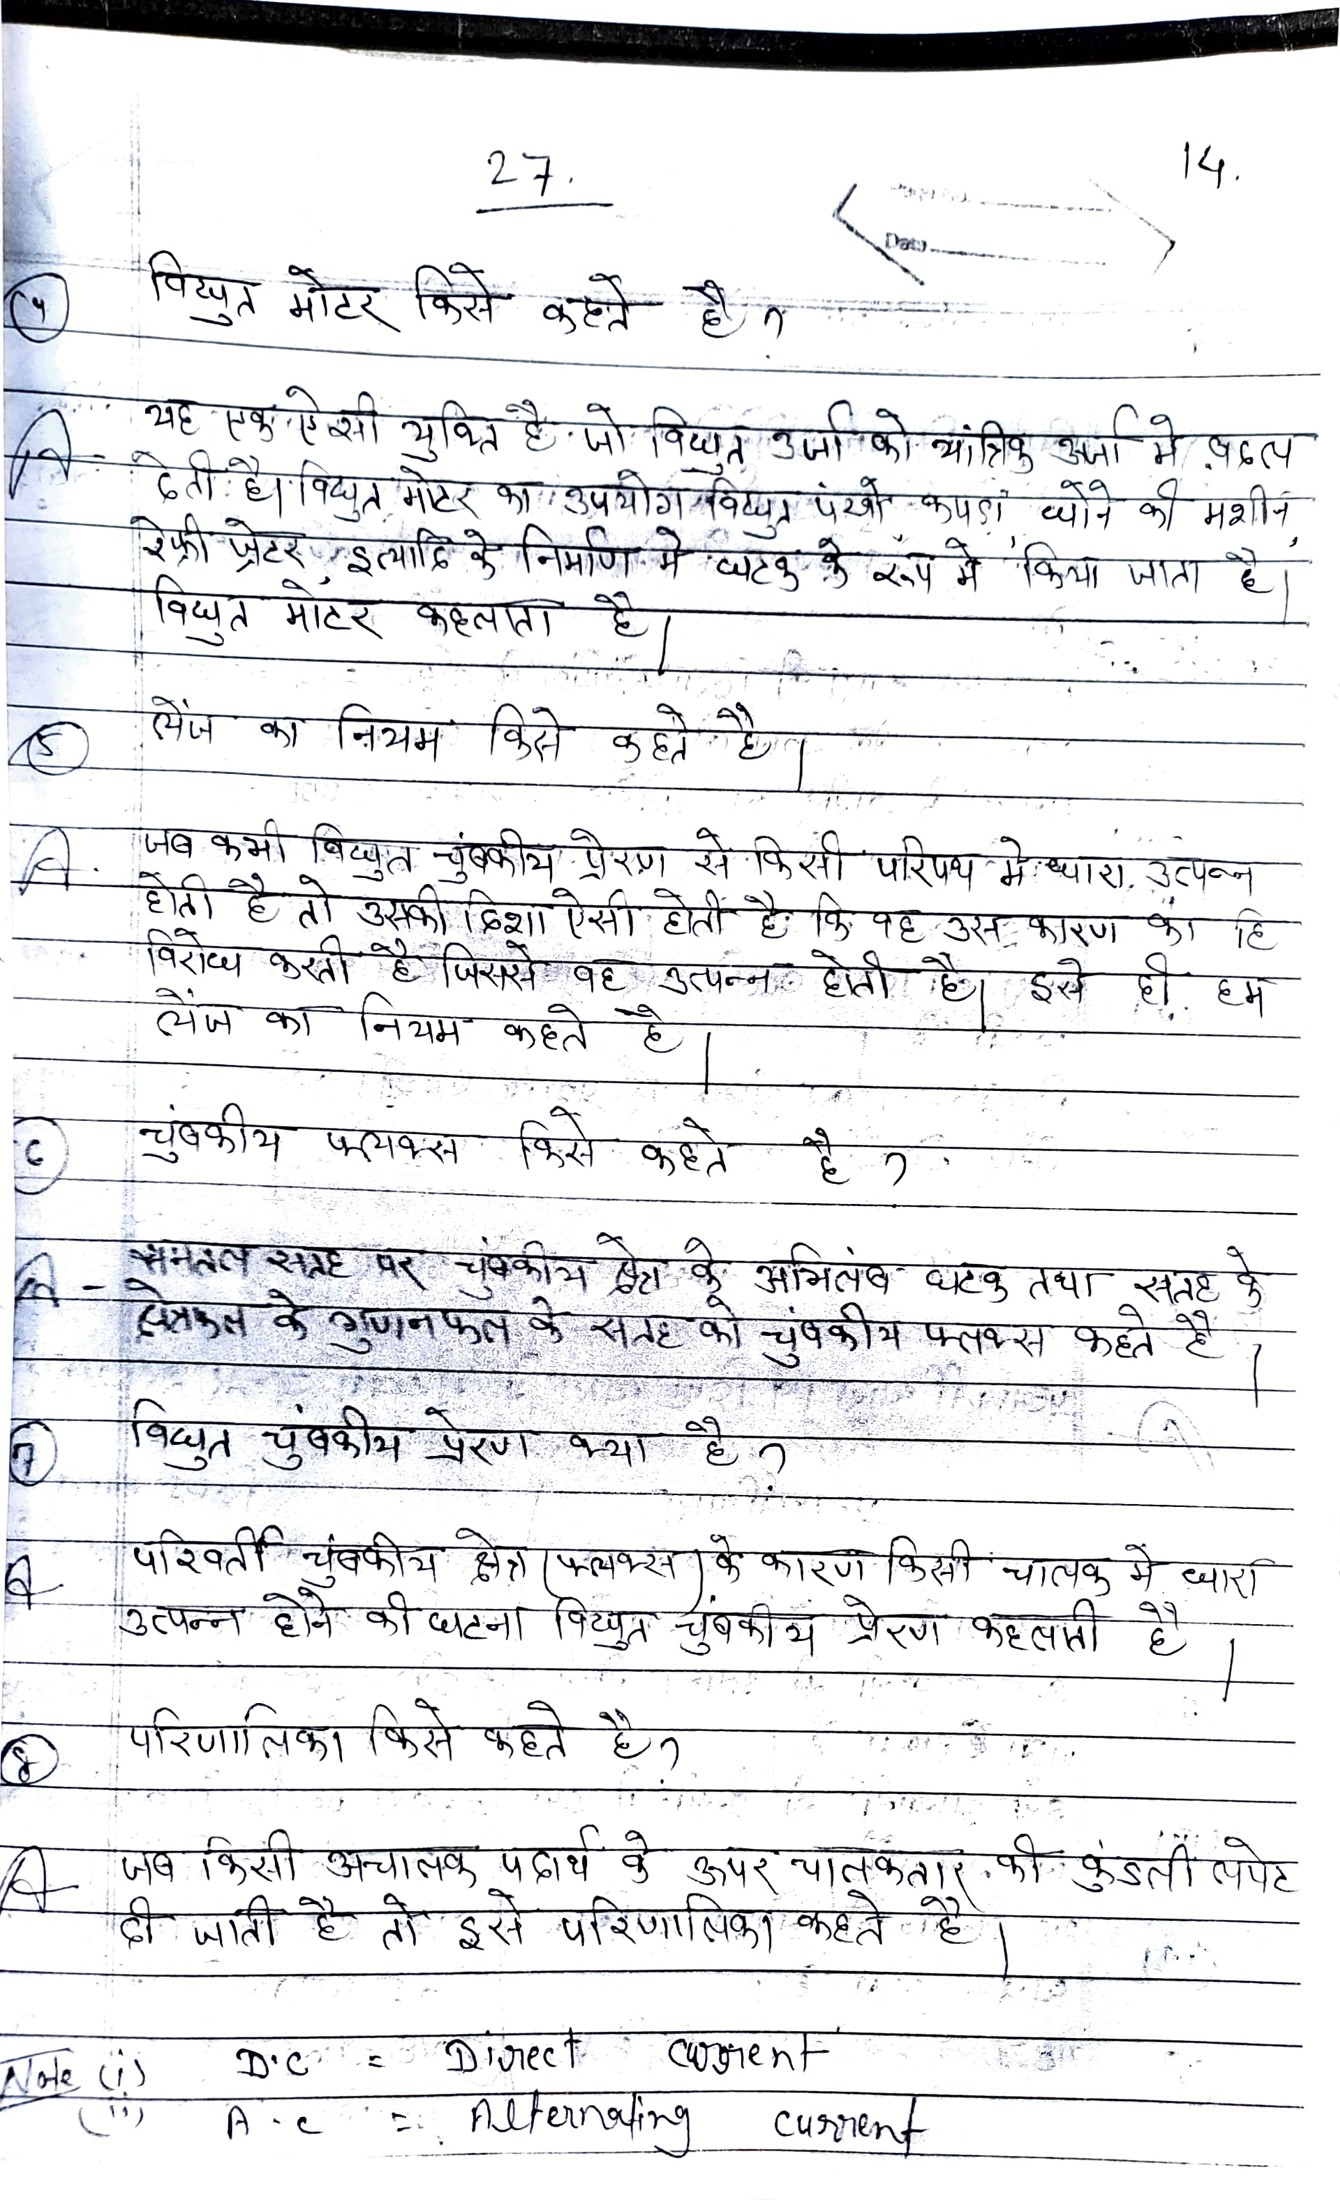 27.
14.
Date
(4) विद्युत मोटर किसे कहते है ?
A- यह एक ऐसी युक्ति है जो विद्युत उर्जा को यांत्रिक उर्जा मे बदल
देती है। विद्युत मोटर का उपयोग विद्युत पंखो कपडा धोने की मशीन,
रेफ्री जेटर, इत्यादि के निर्माण मे घटक के रूप मे किया जाता है।
विद्युत मोटर कहलाता है।
(5) लेंज का नियम किसे कहते है।
A. जब कभी विद्युत चुंबकीय प्रेरण से किसी परिपथ मे धारा उत्पन्न
होती है तो उसकी दिशा ऐसी होती है कि वह उस कारण का हि
विरोध करती है जिससे वह उत्पन्न होती है। इसे ही हम
लेंज का नियम कहते है।
(6) चुंबकीय फ्लक्स किसे कहते है ?
A- समतल सतह पर चुंबकीय क्षेत्र के अभिलंब घटक तथा सतह के
क्षेत्रफल के गुणनफल के सतह को चुंबकीय फ्लक्स कहते है।
(7) विद्युत चुंबकीय प्रेरण क्या है ?
A परिवर्ती चुंबकीय क्षेत्र (फ्लक्स) के कारण किसी चालक मे धारा
उत्पन्न होने की घटना विद्युत चुंबकीय प्रेरण कहलाती है।
(8) परिणालिका किसे कहते है ?
A जब किसी अचालक पदार्थ के ऊपर चालकतार की कुंडली लपेट
दी जाती है तो इसे परिणालिका कहते है।
Note (i) D.C = Direct current
(ii) A.C = Alternating current